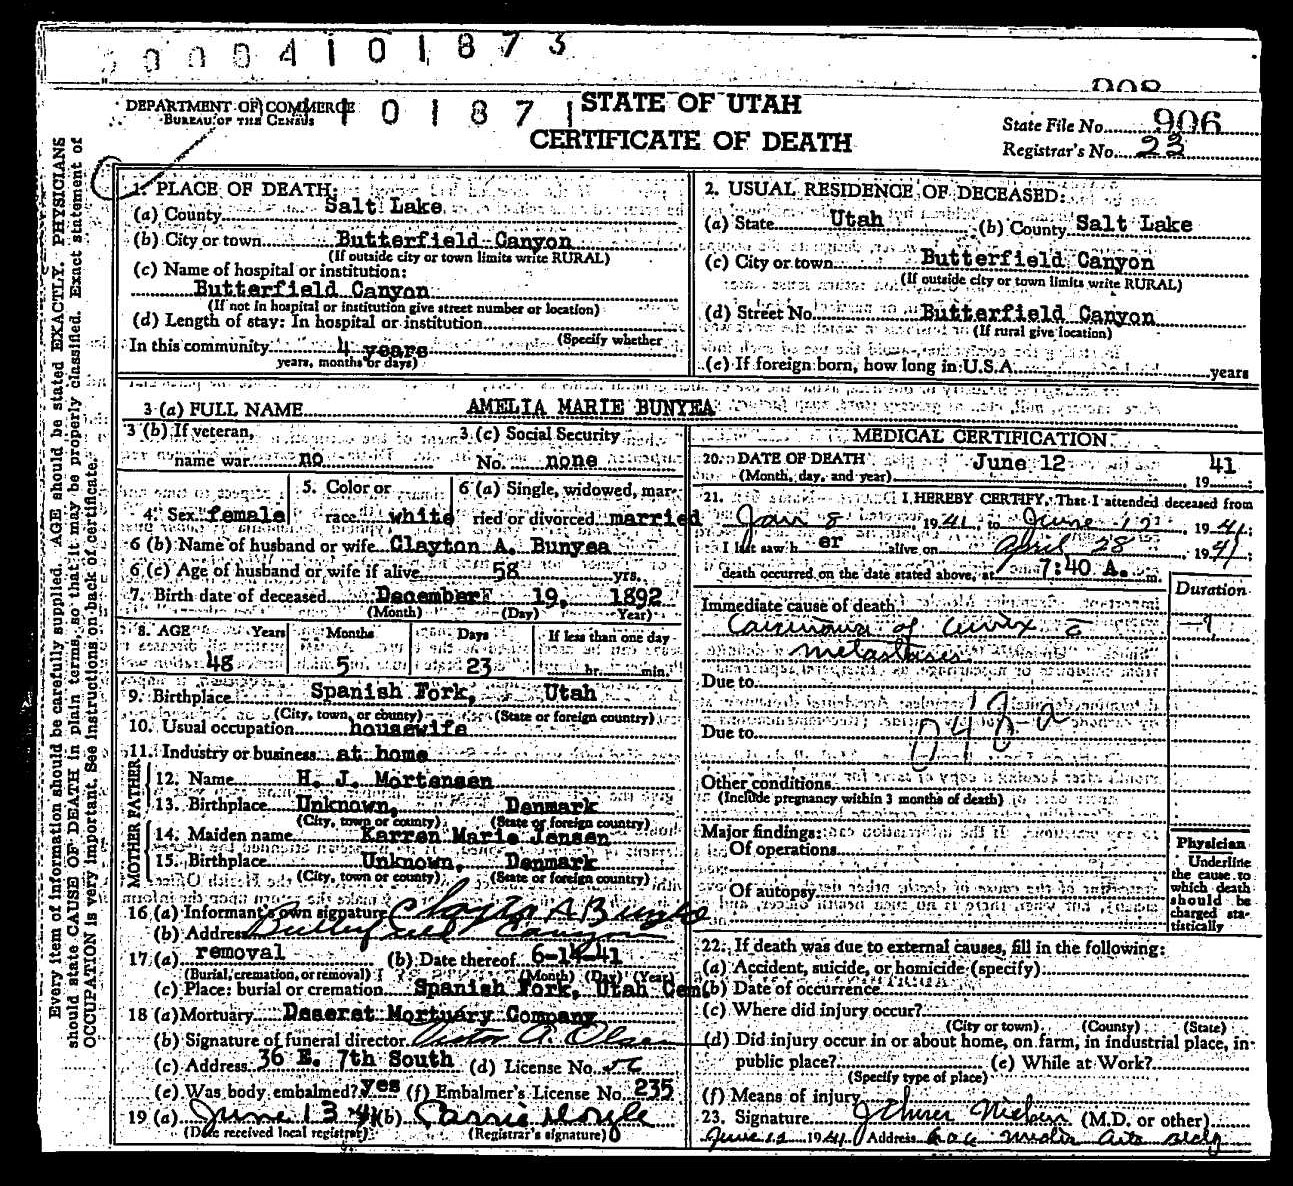 0004101873
908
DEPARTMENT OF COMMERCE
BUREAU OF THE CENSUS
4101871
STATE OF UTAH
CERTIFICATE OF DEATH
State File No. 906
Registrar's No. 23
Every item of information should be carefully supplied. AGE should be stated EXACTLY. PHYSICIANS
should state CAUSE OF DEATH in plain terms, so that it may be properly classified. Exact statement of
OCCUPATION is very important. See instructions on back of certificate.
1. PLACE OF DEATH:
(a) County Salt Lake
(b) City or town Butterfield Canyon
(If outside city or town limits write RURAL)
(c) Name of hospital or institution:
Butterfield Canyon
(If not in hospital or institution give street number or location)
(d) Length of stay: In hospital or institution
(Specify whether
In this community 4 years
years, months or days)
2. USUAL RESIDENCE OF DECEASED:
(a) State Utah (b) County Salt Lake
(c) City or town Butterfield Canyon
(If outside city or town limits write RURAL)
(d) Street No. Butterfield Canyon
(If rural give location)
(e) If foreign born, how long in U.S.A. years
3 (a) FULL NAME AMELIA MARIE BUNYEA
3 (b) If veteran,
name war no
3 (c) Social Security
No. none
4. Sex female
5. Color or
race white
6 (a) Single, widowed, mar-
ried or divorced married
6 (b) Name of husband or wife Clayton A. Bunyea
6 (c) Age of husband or wife if alive 58 yrs.
7. Birth date of deceased December 19, 1892
(Month) (Day) Year)
8. AGE Years Months Days If less than one day
48 5 23 hr. min.
9. Birthplace Spanish Fork, Utah
(City, town, or county) (State or foreign country)
10. Usual occupation housewife
11. Industry or business at home
FATHER
12. Name H. J. Mortensen
13. Birthplace Unknown, Denmark
(City, town or county) (State or foreign country)
MOTHER
14. Maiden name Karren Marie Jensen
15. Birthplace Unknown, Denmark
(City, town or county) (State or foreign country)
16 (a) Informant's own signature Clayton A Bunyea
(b) Address Butterfield Canyon
17 (a) removal (b) Date thereof 6-14-41
(Burial, cremation, or removal) (Month) (Day) (Year)
(c) Place: burial or cremation Spanish Fork, Utah Cem.
18 (a) Mortuary Deseret Mortuary Company
(b) Signature of funeral director Victor A. Olsen
(c) Address 36 E. 7th South (d) License No. 56
(e) Was body embalmed? yes (f) Embalmer's License No. 235
19 (a) June 13-41 (b) Carrie Doyle
(Date received local registrar) (Registrar's signature)
MEDICAL CERTIFICATION
20. DATE OF DEATH June 12 41
(Month, day, and year) , 19 ;
21. I HEREBY CERTIFY, That I attended deceased from
Jan 8, 1941, to June 12, 1941;
I last saw h er alive on April 28, 1941;
death occurred on the date stated above, at 7:40 A. m.
Duration
Immediate cause of death
Carcinoma of cervix c̄ ?
metastasis
Due to
Due to
048-a
Other conditions
(Include pregnancy within 3 months of death)
Major findings:
Of operations
Of autopsy
Physician
Underline
the cause to
which death
should be
charged sta-
tistically
22. If death was due to external causes, fill in the following:
(a) Accident, suicide, or homicide (specify)
(b) Date of occurrence
(c) Where did injury occur?
(City or town) (County) (State)
(d) Did injury occur in or about home, on farm, in industrial place, in
public place? (e) While at Work?
(Specify type of place)
(f) Means of injury
23. Signature (M.D. or other)
June 12 1941 Address Medical Arts Bldg